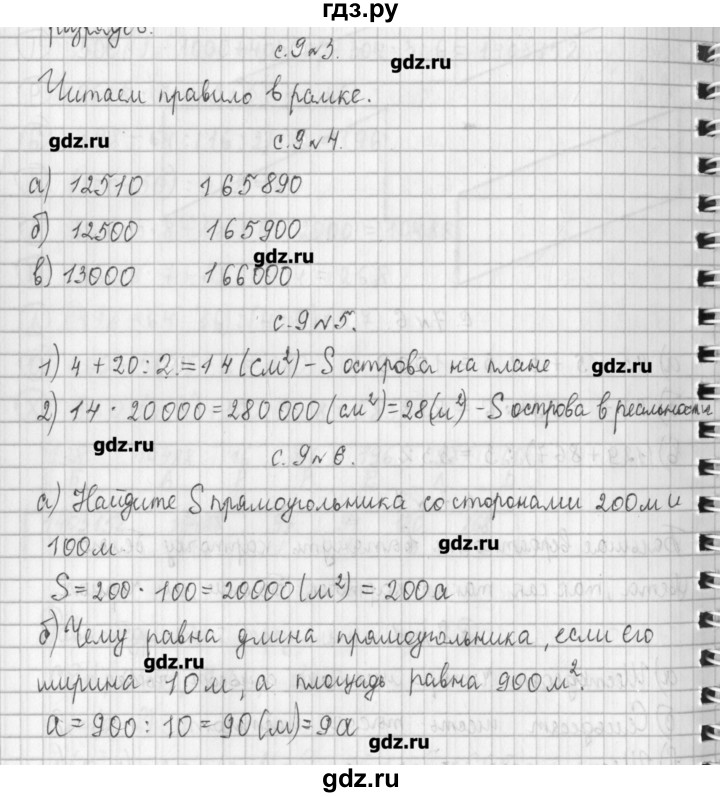 гдз.ру
с.9№3.
gdz.ru
Читаем правило в рамке.
gdz.ru
с.9№4.
а) 12510 165890
б) 12500 165900
gdz.ru
в) 13000 166000
с.9№5.
1) 4 + 20 : 2 = 14 (см²) - S острова на плане
gdz.ru
2) 14 · 20000 = 280 000 (см²) = 28 (м²) - S острова в реальности
gdz.ru
с.9№6.
а) Найдите S прямоугольника со сторонами 200м и
100м
gdz.ru
S = 200 · 100 = 20000 (м²) = 200а
б) Чему равна длина прямоугольника, если его
gdz.ru
ширина 10м, а площадь равна 900м².
а = 900 : 10 = 90 (м) = 9а
gdz.ru
gdz.ru